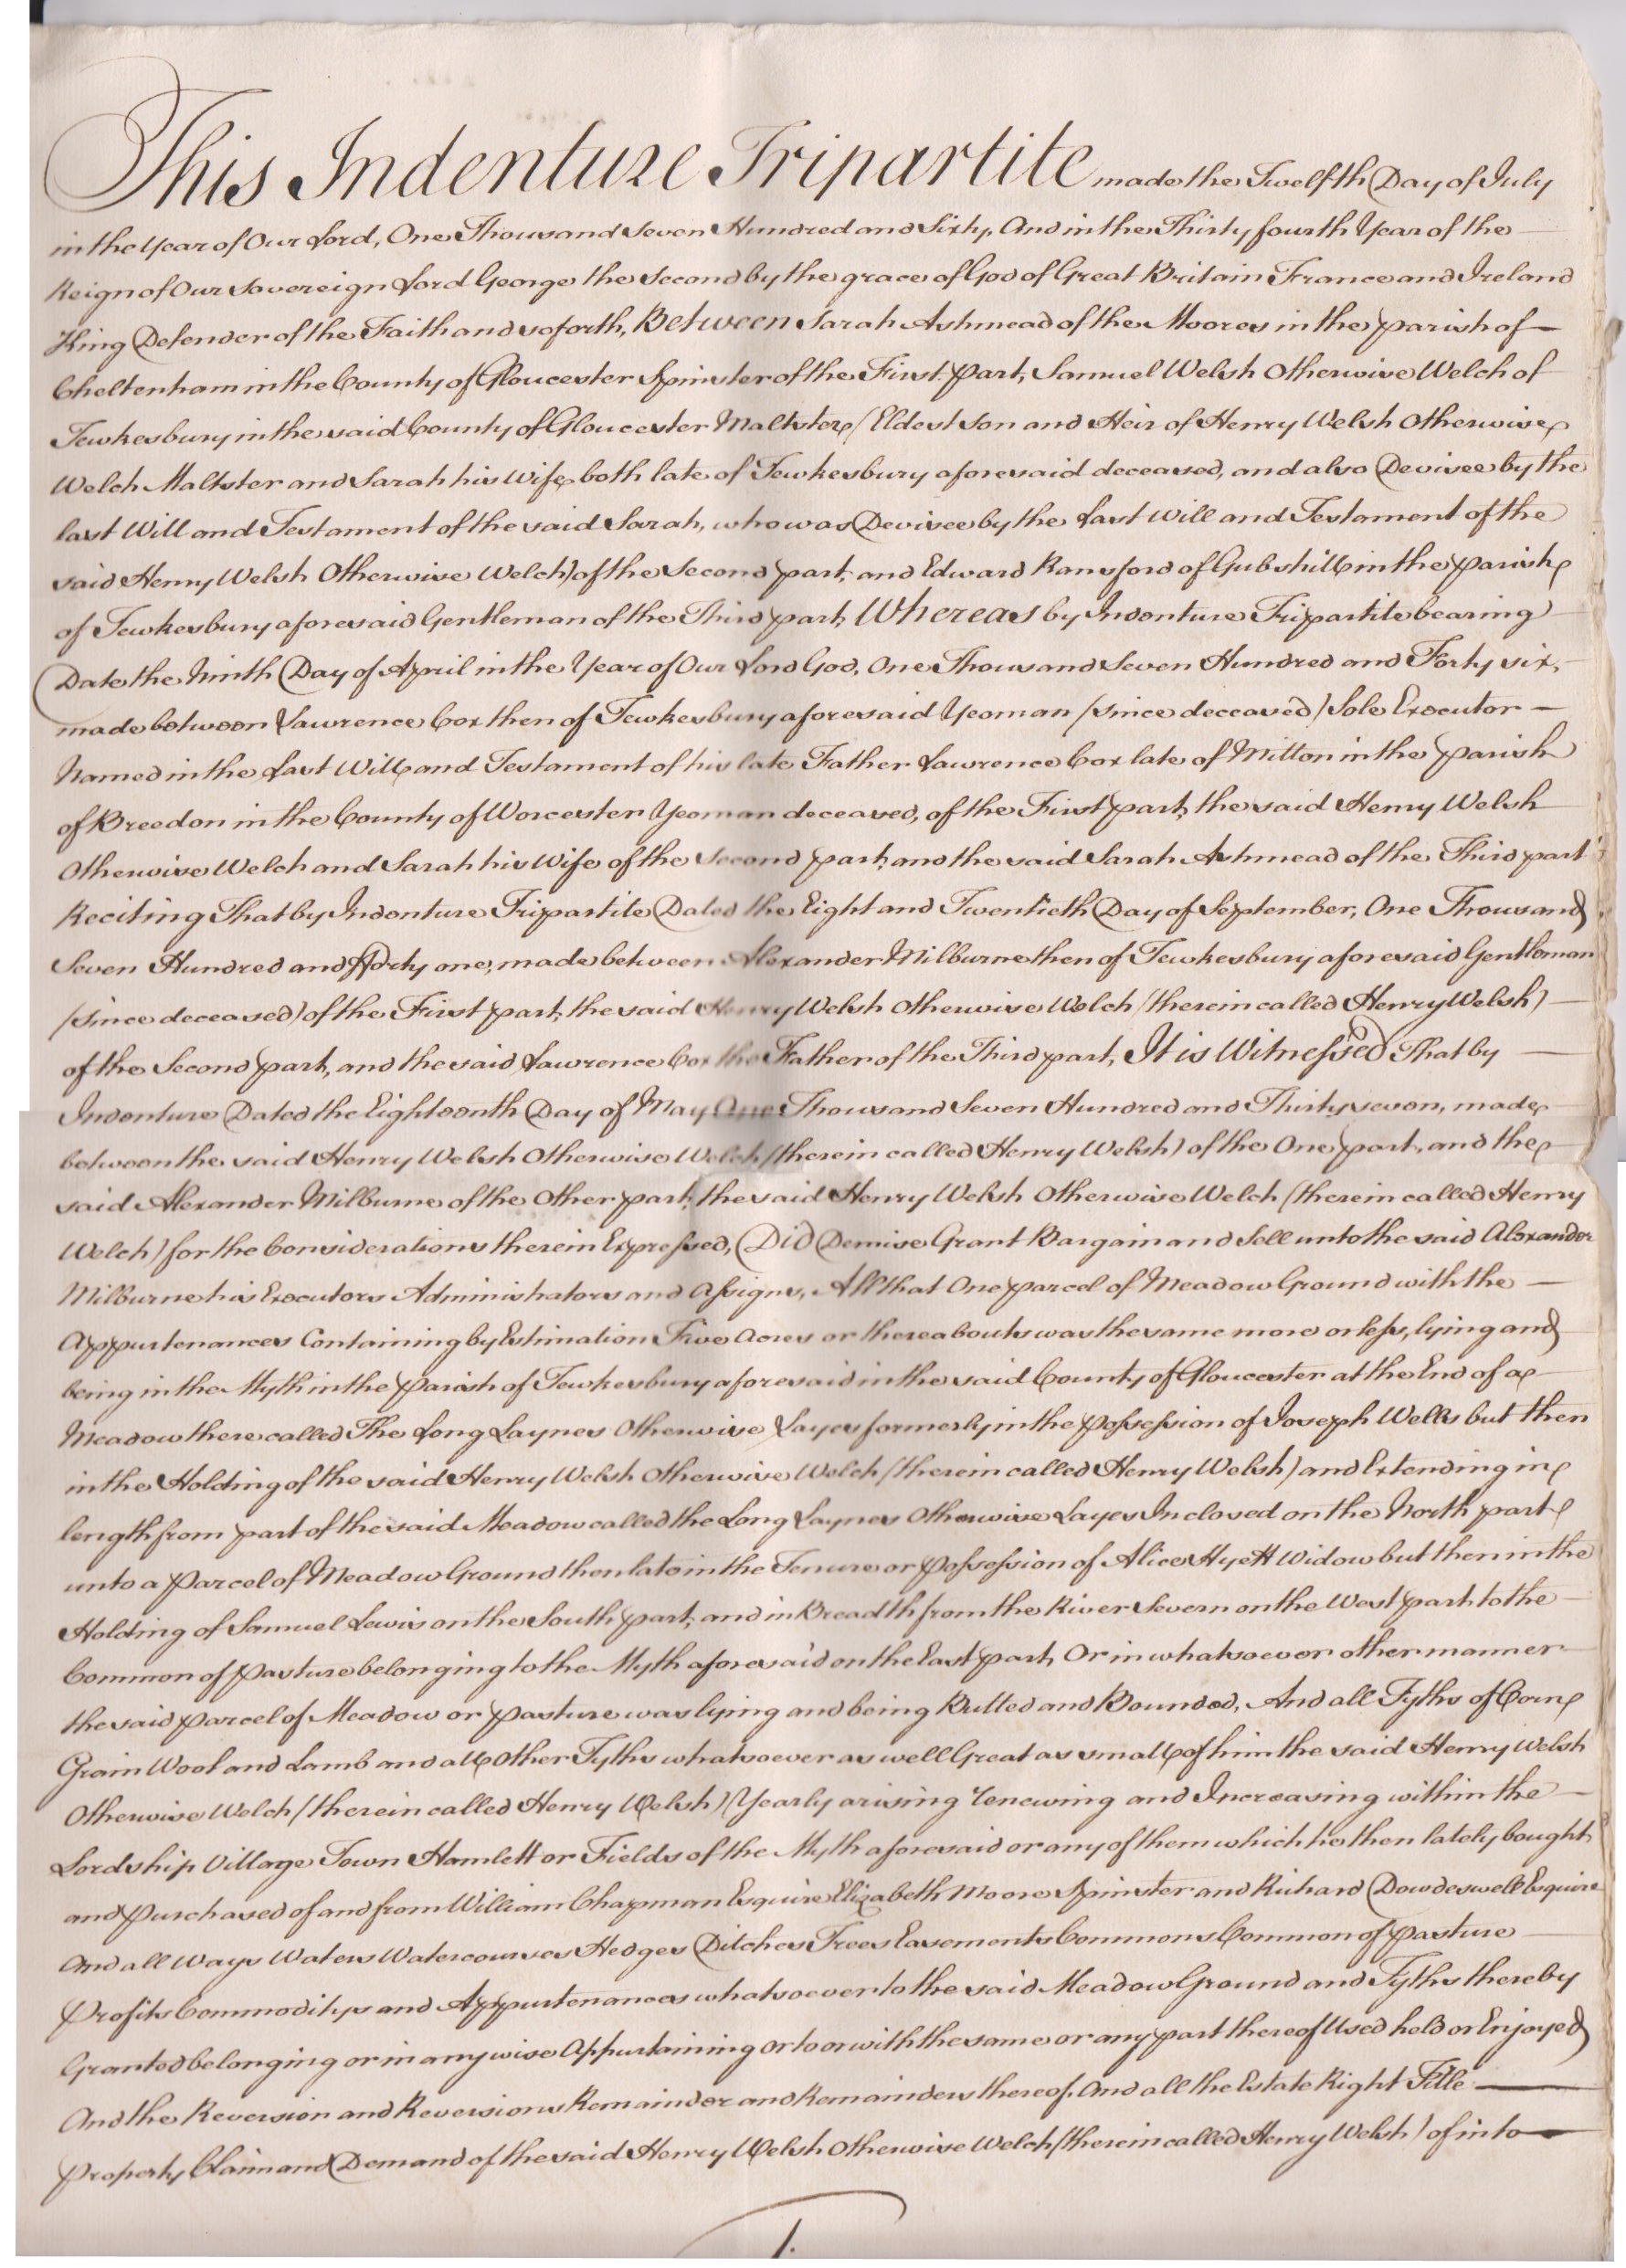 This Indenture Tripartite made the Twelfth Day of July
in the Year of Our Lord, One Thousand Seven Hundred and Sixty, And in the Thirty fourth Year of the
Reign of Our Sovereign Lord George the Second by the grace of God of Great Britain France and Ireland
King Defender of the Faith and so forth, Between Sarah Ashmead of the Moores in the parish of
Cheltenham in the County of Gloucester Spinster of the First part, Samuel Welsh Otherwise Welch of
Tewkesbury in the said County of Gloucester Maltster (Eldest Son and Heir of Henry Welsh Otherwise
Welch Maltster and Sarah his Wife both late of Tewkesbury aforesaid deceased, and also Devisee by the
last Will and Testament of the said Sarah, who was Devisee by the Last Will and Testament of the
said Henry Welsh Otherwise Welch) of the Second part, and Edward Ransford of Gubshill in the parish
of Tewkesbury aforesaid Gentleman of the Third part, Whereas by Indenture Tripartite bearing
Date the Ninth Day of April in the Year of Our Lord God, One Thousand Seven Hundred and Forty six,
made between Lawrence Cox then of Tewkesbury aforesaid Yeoman (since deceased) Sole Executor
Named in the Last Will and Testament of his late Father Lawrence Cox late of Mitton in the parish
of Breedon in the County of Worcester Yeoman deceased, of the First part, the said Henry Welsh
Otherwise Welch and Sarah his Wife of the Second part, and the said Sarah Ashmead of the Third part
Reciting That by Indenture Tripartite Dated the Eight and Twentieth Day of September, One Thousand
Seven Hundred and fforty one, made between Alexander Milburne then of Tewkesbury aforesaid Gentleman
(since deceased) of the First part, the said Henry Welsh Otherwise Welch (therein called Henry Welsh)
of the Second part, and the said Lawrence Cox the Father of the Third part, It is Witnessed That by
Indenture Dated the Eighteenth Day of May One Thousand Seven Hundred and Thirty seven, made
between the said Henry Welsh Otherwise Welch (therein called Henry Welsh) of the One part, and the
said Alexander Milburne of the Other part, the said Henry Welsh Otherwise Welch (therein called Henry
Welch) for the Considerations therein Expressed, Did Demise Grant Bargain and Sell unto the said Alexander
Milburne his Executors Administrators and Assigns, All that One parcel of Meadow Ground with the
Appurtenances Containing by Estimation Five Acres or thereabouts was the same more or less, lying and
being in the Myth in the Parish of Tewkesbury aforesaid in the said County of Gloucester at the End of a
Meadow there called The Long Laynes Otherwise Layes formerly in the possession of Joseph Wells but then
in the Holding of the said Henry Welsh Otherwise Welch (therein called Henry Welsh) and Extending in
length from part of the said Meadow called the Long Laynes Otherwise Layes Inclosed on the North part
unto a Parcel of Meadow Ground then late in the Tenure or possession of Alice Hyett Widow but then in the
Holding of Samuel Lewis on the South part, and in Breadth from the River Severn on the West part to the
Common of Pasture belonging to the Myth aforesaid on the East part, Or in whatsoever other manner
the said parcel of Meadow or pasture was lying and being Butted and Bounded, And all Tyths of Corn
Grain Wool and Lamb and all other Tyths whatsoever as well Great as small of him the said Henry Welsh
Otherwise Welch (therein called Henry Welsh) Yearly arising renewing and Increasing within the
Lordship Village Town Hamlett or Fields of the Myth aforesaid or any of them which he then lately bought
and purchased of and from William Chapman Esquire Elizabeth Moore Spinster and Richard Dowdeswell Esquire
And all Ways Waters Watercourses Hedges Ditches Trees Easements Commons Common of Pasture
Profits Commoditys and Appurtenances whatsoever to the said Meadow Ground and Tyths thereby
Granted belonging or in any wise Appurtaining or to or with the same or any part thereof Used held or Enjoyed
And the Reversion and Reversions Remainder and Remainders thereof, And all the Estate Right Title
Property Claim and Demand of the said Henry Welsh Otherwise Welch (therein called Henry Welsh) of in to
1.